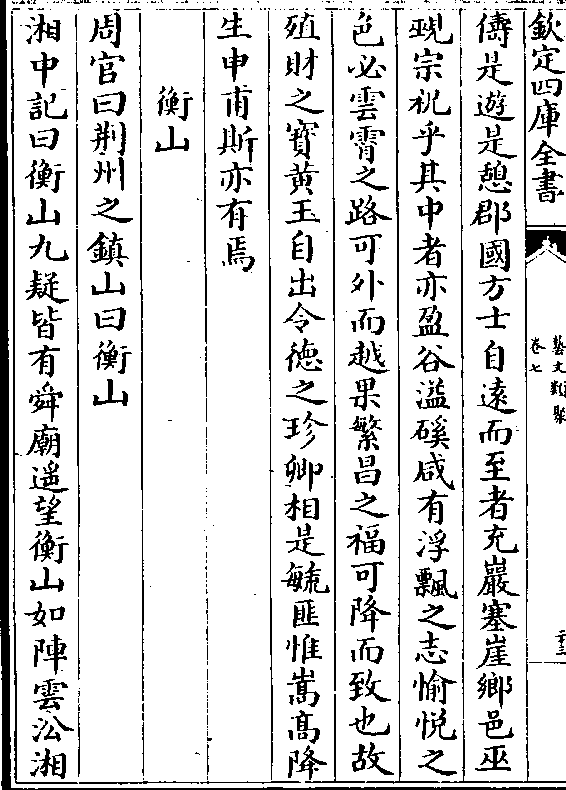 欽定四庫全書
藝文類聚
卷七
儔是遊是憩郡國方士自遠而至者充巖塞崖鄉邑巫
覡宗祝乎其中者亦盈谷溢磎咸有浮飄之志愉悅之
色必雲霄之路可升而越果繁昌之福可降而致也故
殖財之寶黄玉自出令德之珍卿相是毓匪惟嵩髙降
生申甫斯亦有焉
衡山
周官曰荆州之鎮山曰衡山
湘中記曰衡山九疑皆有舜廟遥望衡山如陣雲㳂湘